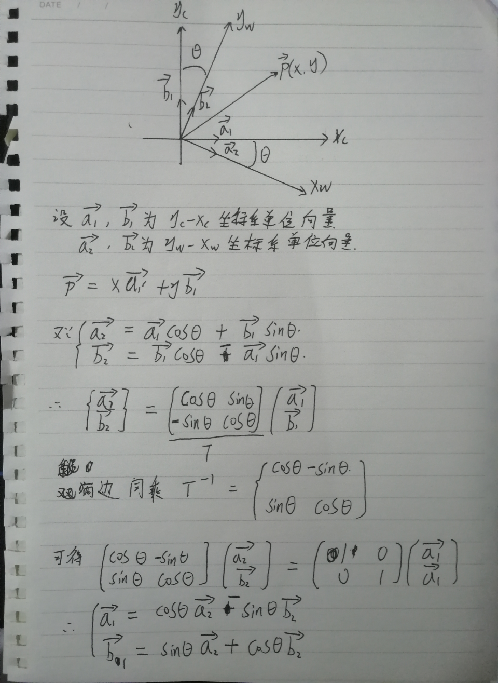 DATE / /
yc
yw
θ
P⃗(x,y)
b⃗₁
b⃗₂
a⃗₁
xc
a⃗₂
θ
xw
设 a⃗₁, b⃗₁ 为 yc-xc 坐标系单位向量
a⃗₂, b⃗₂ 为 yw-xw 坐标系单位向量.
P⃗ = x a⃗₁ + y b⃗₁
又∵ { a⃗₂ = a⃗₁ cosθ + b⃗₁ sinθ.
b⃗₂ = b⃗₁ cosθ - a⃗₁ sinθ.
∴ { a⃗₂ } = [ cosθ sinθ ] ( a⃗₁ )
{ b⃗₂ } [ -sinθ cosθ ] ( b⃗₁ )
T
两边同乘 T⁻¹ = { cosθ -sinθ.
sinθ cosθ )
可得 [ cosθ -sinθ ] ( a⃗₂ ) = ( 1 0 ) ( a⃗₁ )
[ sinθ cosθ ] ( b⃗₂ ) ( 0 1 ) ( a⃗₁ )
∴ { a⃗₁ = cosθ a⃗₂ - sinθ b⃗₂
b⃗₁ = sinθ a⃗₂ + cosθ b⃗₂